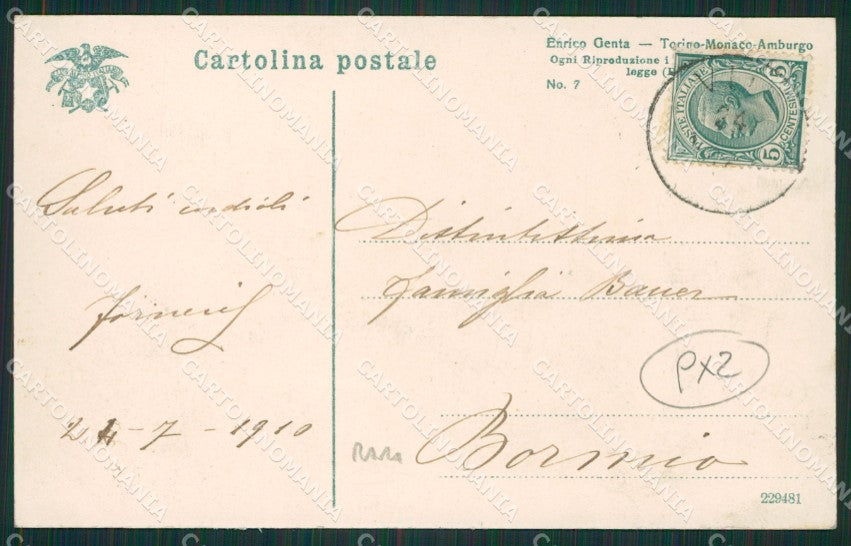 Cartolina postale
Enrico Genta — Torino-Monaco-Amburgo
Ogni Riproduzione i
legge
No. 7
POSTE ITALIANE
CENTESIMI
5
5
Saluti cordiali
24-7-1910
Distintissima
Famiglia Bauer
Bormio
PX2
229481
CARTOLINOMANIA